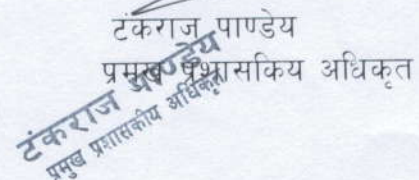 टंकराज पाण्डेय
प्रमुख प्रशासकिय अधिकृत
टंकराज पाण्डेय
प्रमुख प्रशासकीय अधिकृत